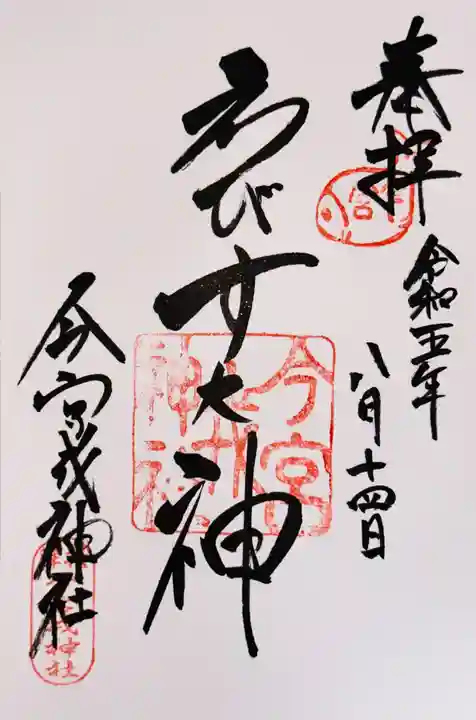 奉拝
令和五年
八月十四日
ゑびす大神
今宮
戎
神社
今宮戎神社
戎神社